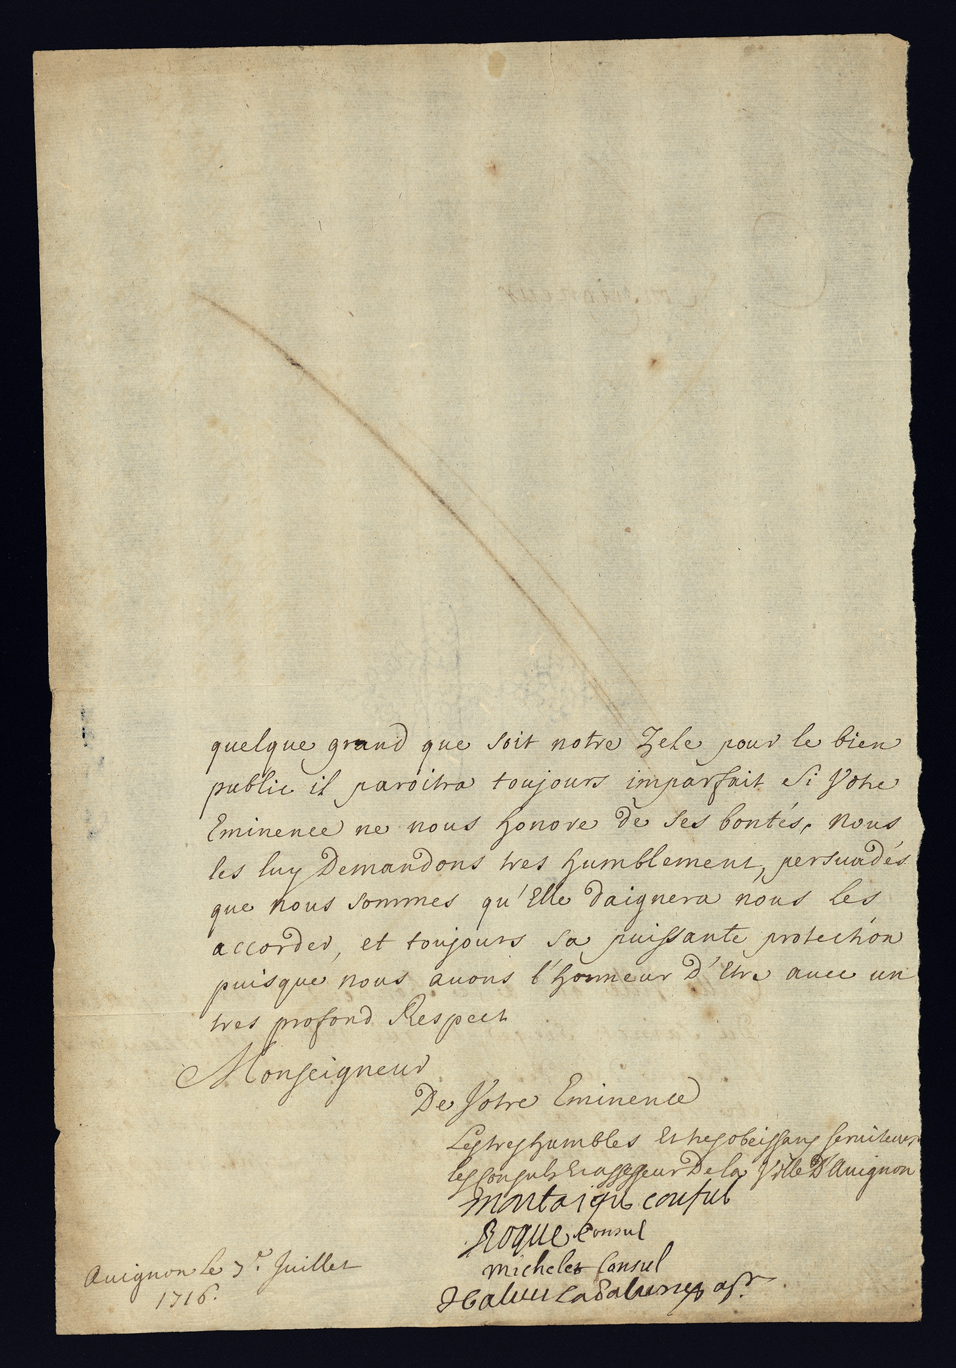 quelque grand que soit notre Zele pour le bien
public il paroitra toujours imparfait Si Votre
Eminence ne nous honore de ses bontés, nous
les luy Demandons tres humblement, persuadés
que nous sommes qu'Elle daignera nous les
accorder, et toujours sa puissante protection
puisque nous auons l'honneur D'Etre auec un
tres profond Respect
Monseigneur
De Votre Eminence
Les tres humbles Et tres obeissans seruiteurs
les Consuls Et assesseur De la Ville D'Auignon
montaigu consul
Roque Consul
michelet Consul
assr
Auignon le Juillet
1716.